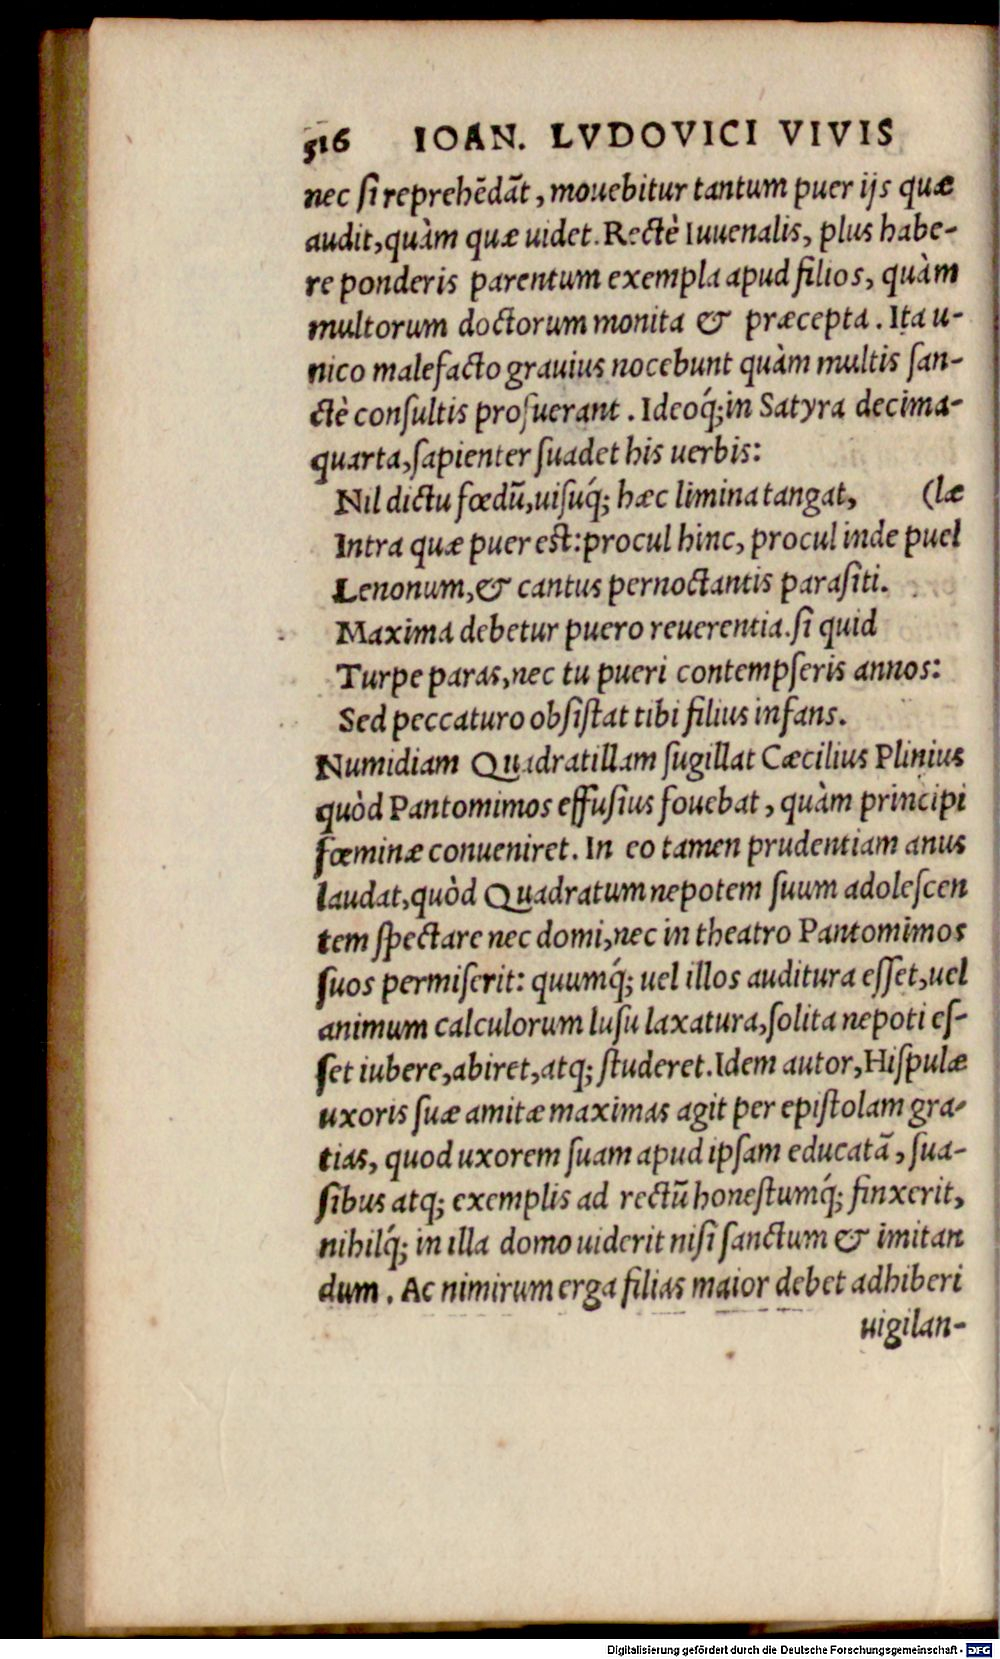 316 IOAN. LVDOVICI VIVIS
nec ſi reprehẽdãt, mouebitur tantum puer ijs quæ
audit, quàm quæ uidet. Rectè Iuuenalis, plus habe-
re ponderis parentum exempla apud filios, quàm
multorum doctorum monita & præcepta. Ita u-
nico malefacto grauius nocebunt quàm multis ſan-
ctè conſultis profuerant. Ideoq́; in Satyra decima-
quarta, ſapienter ſuadet his uerbis:
Nil dictu fœdũ, uiſuq́; hæc limina tangat, (læ
Intra quæ puer est: procul hinc, procul inde puel
Lenonum, & cantus pernoctantis paraſiti.
Maxima debetur puero reuerentia. ſi quid
Turpe paras, nec tu pueri contempſeris annos:
Sed peccaturo obſiſtat tibi filius infans.
Numidiam Quadratillam ſugillat Cæcilius Plinius
quòd Pantomimos effuſius fouebat, quàm principi
fœminæ conueniret. In eo tamen prudentiam anus
laudat, quòd Quadratum nepotem ſuum adoleſcen
tem ſpectare nec domi, nec in theatro Pantomimos
ſuos permiſerit: quumq́; uel illos auditura eſſet, uel
animum calculorum luſu laxatura, ſolita nepoti eſ-
ſet iubere, abiret, atq; ſtuderet. Idem autor, Hiſpulæ
uxoris ſuæ amitæ maximas agit per epiſtolam gra-
tias, quod uxorem ſuam apud ipſam educatã, ſua-
ſibus atq; exemplis ad rectũ honeſtumq́; finxerit,
nihilq́; in illa domo uiderit niſi ſanctum & imitan
dum. Ac nimirum erga filias maior debet adhiberi
uigilan-
Digitalisierung gefördert durch die Deutsche Forschungsgemeinschaft - DFG